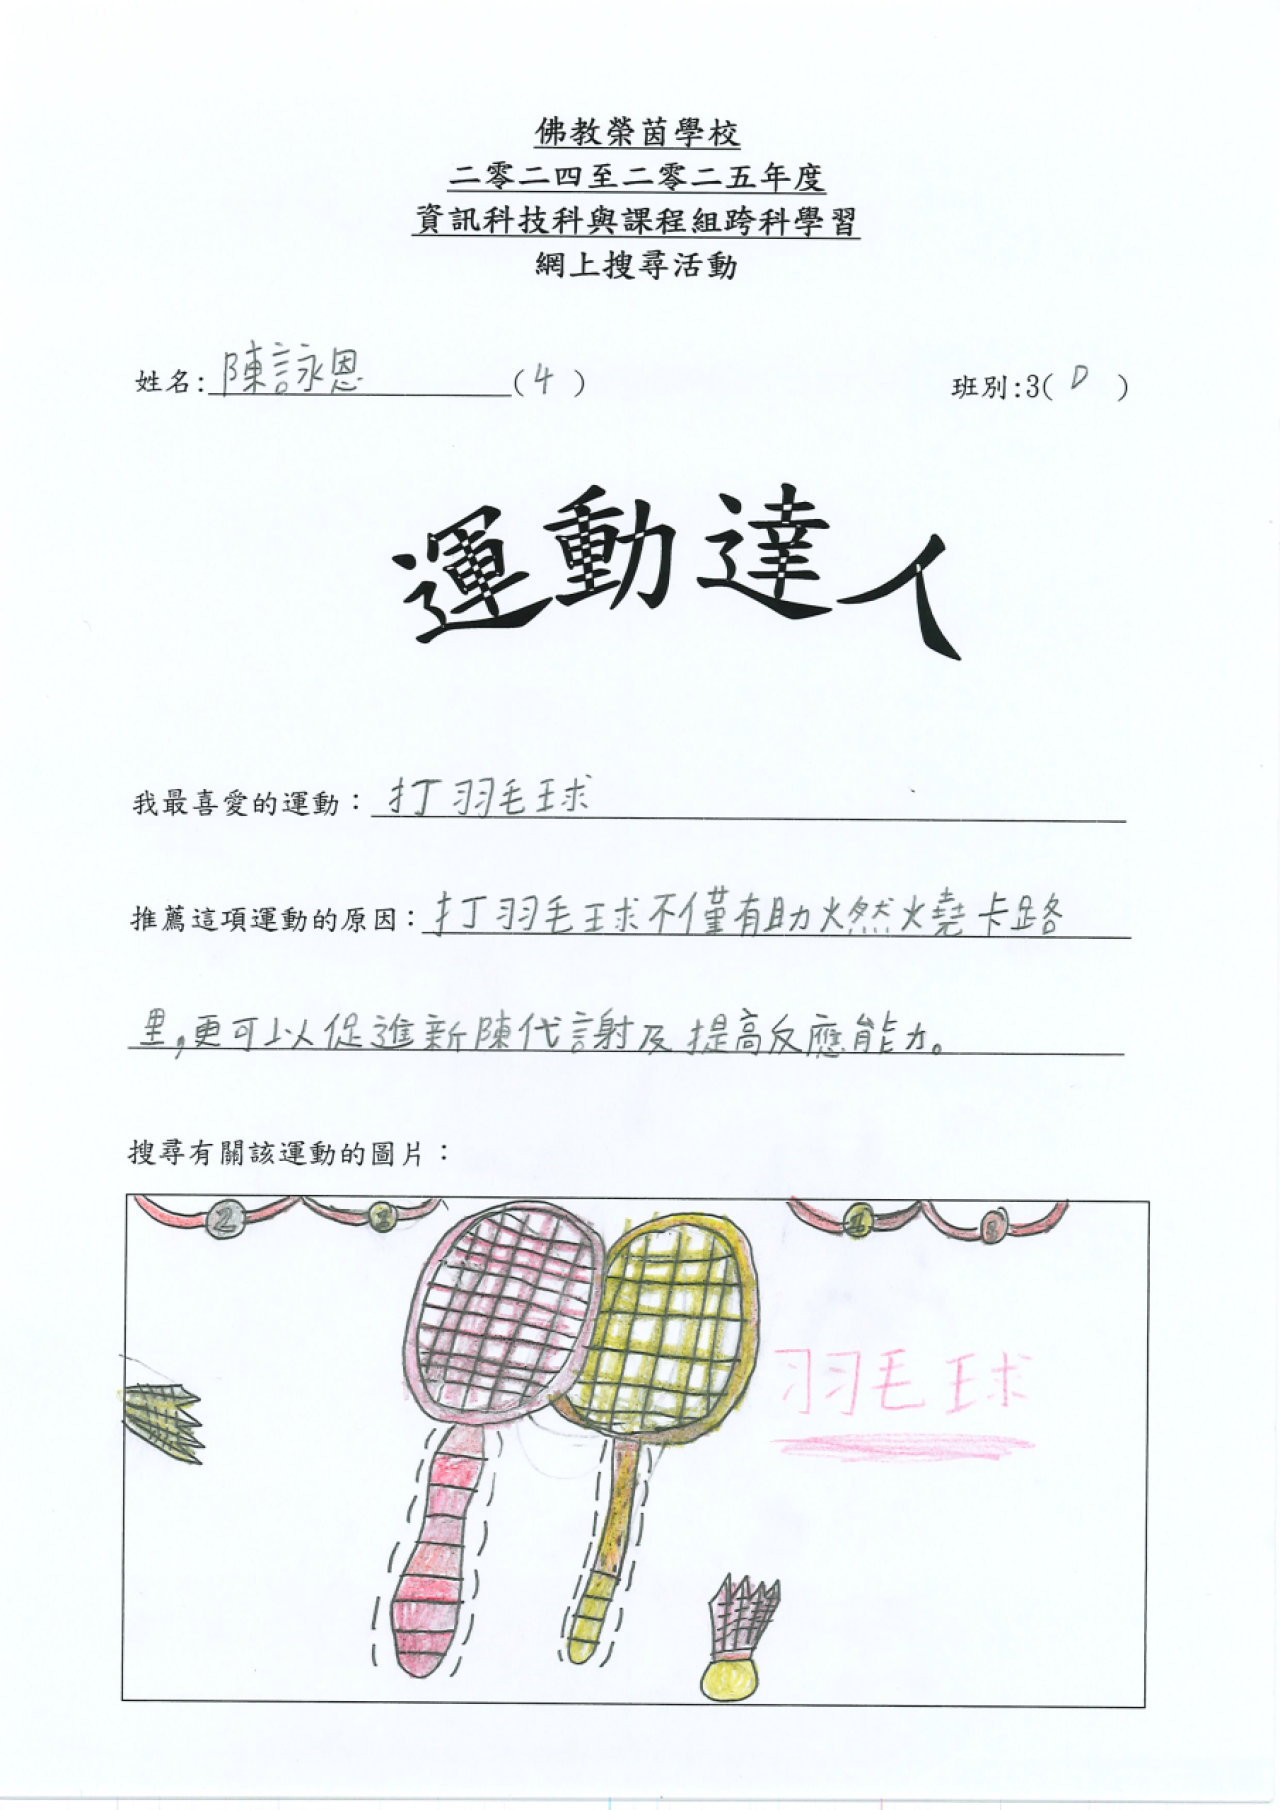 佛教榮茵學校
二零二四至二零二五年度
資訊科技科與課程組跨科學習
網上搜尋活動
姓名:陳詠恩(4) 班別:3(D)
運動達人
我最喜愛的運動：打羽毛球
推薦這項運動的原因:打羽毛球不僅有助燃燒卡路
里,更可以促進新陳代謝及提高反應能力。
搜尋有關該運動的圖片：
2
羽毛球